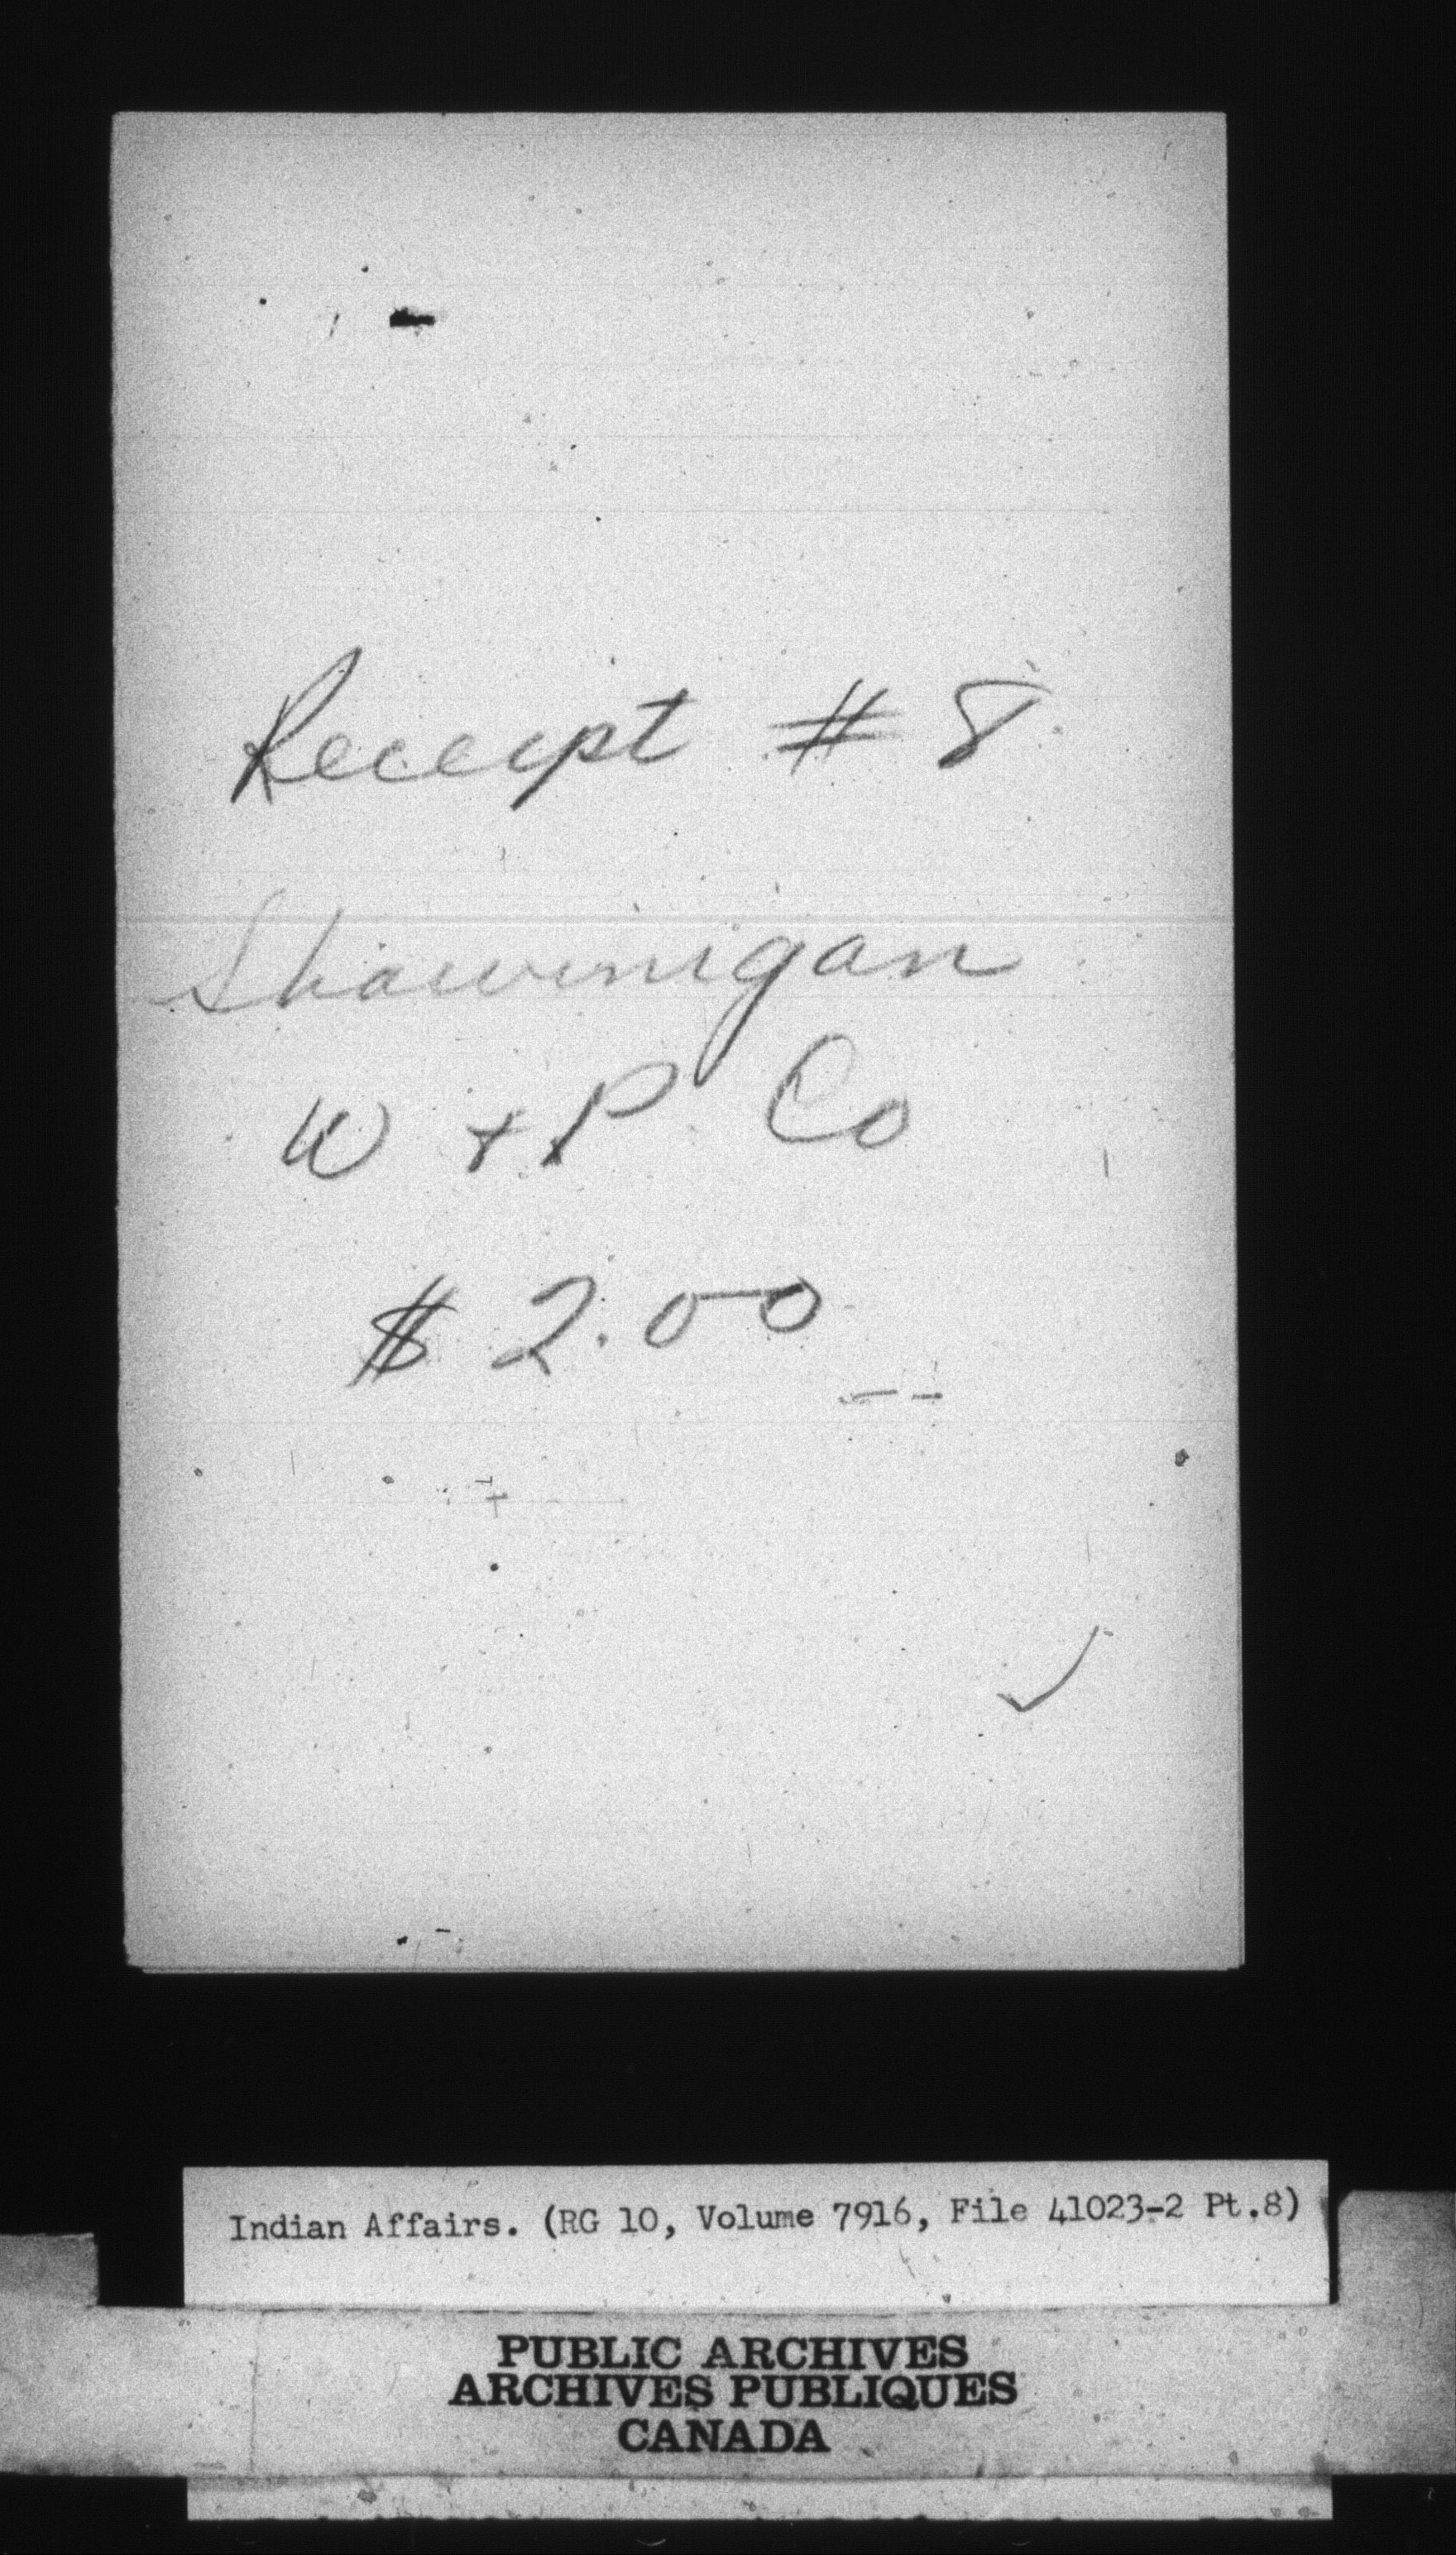 Receipt # 8
Shawinigan
W + P Co
$ 2.00
Indian Affairs. (RG 10, Volume 7916, File 41023-2 Pt.8)
PUBLIC ARCHIVES
ARCHIVES PUBLIQUES
CANADA